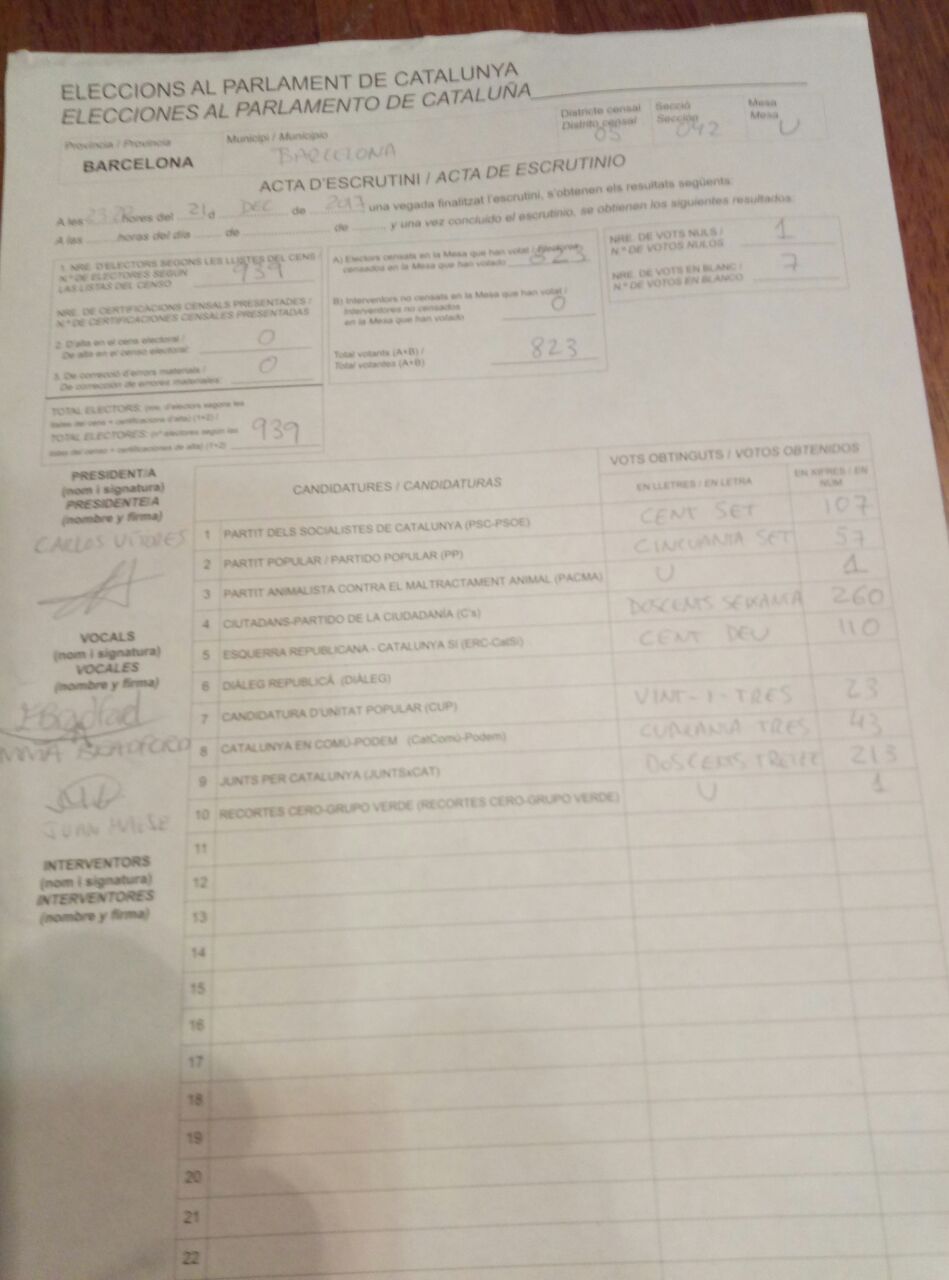 ELECCIONS AL PARLAMENT DE CATALUNYA
ELECCIONES AL PARLAMENTO DE CATALUÑA
Província / Provincia
BARCELONA
Municipi / Municipio
BARCELONA
Districte censal
Distrito censal
05
Secció
Sección
042
Mesa
Mesa
U
ACTA D'ESCRUTINI / ACTA DE ESCRUTINIO
A les hores del 21 d DEC de 2017 una vegada finalitzat l'escrutini, s'obtenen els resultats següents:
A las horas del día de de y una vez concluido el escrutinio, se obtienen los siguientes resultados:
1. NRE. D'ELECTORS SEGONS LES LLISTES DEL CENS /
N.º DE ELECTORES SEGÚN
LAS LISTAS DEL CENSO
939
NRE. DE CERTIFICACIONS CENSALS PRESENTADES /
N.º DE CERTIFICACIONES CENSALES PRESENTADAS
2. D'alta en el cens electoral /
De alta en el censo electoral:
0
3. De correcció d'errors materials /
De corrección de errores materiales:
0
TOTAL ELECTORS: (nre. d'electors segons les
llistes del cens + certificacions d'alta) (1+2) /
TOTAL ELECTORES: (nº electores según las
listas del censo + certificaciones de alta) (1+2)
939
A) Electors censats en la Mesa que han votat / Electores
censados en la Mesa que han votado
823
B) Interventors no censats en la Mesa que han votat /
Interventores no censados
en la Mesa que han votado
0
Total votants (A+B) /
Total votantes (A+B)
823
NRE. DE VOTS NULS /
N.º DE VOTOS NULOS
1
NRE. DE VOTS EN BLANC /
N.º DE VOTOS EN BLANCO
7
PRESIDENT/A
(nom i signatura)
PRESIDENTE/A
(nombre y firma)
CARLOS
VOCALS
(nom i signatura)
VOCALES
(nombre y firma)
BRADFORD
JUAN
INTERVENTORS
(nom i signatura)
INTERVENTORES
(nombre y firma)
CANDIDATURES / CANDIDATURAS
VOTS OBTINGUTS / VOTOS OBTENIDOS
EN LLETRES / EN LETRA
EN XIFRES / EN
NUM
1 PARTIT DELS SOCIALISTES DE CATALUNYA (PSC-PSOE) CENT SET 107
2 PARTIT POPULAR / PARTIDO POPULAR (PP) CINCUANTA SET 57
3 PARTIT ANIMALISTA CONTRA EL MALTRACTAMENT ANIMAL (PACMA) U 1
4 CIUTADANS-PARTIDO DE LA CIUDADANÍA (C's) DOSCENTS SEIXANTA 260
5 ESQUERRA REPUBLICANA - CATALUNYA SÍ (ERC-CatSí) CENT DEU 110
6 DIÀLEG REPUBLICÀ (DIÀLEG)
7 CANDIDATURA D'UNITAT POPULAR (CUP) VINT-I-TRES 23
8 CATALUNYA EN COMÚ-PODEM (CatComú-Podem) CUARANTA TRES 43
9 JUNTS PER CATALUNYA (JUNTSxCAT) DOSCENTS TRETZE 213
10 RECORTES CERO-GRUPO VERDE (RECORTES CERO-GRUPO VERDE) U 1
11
12
13
14
15
16
17
18
19
20
21
22